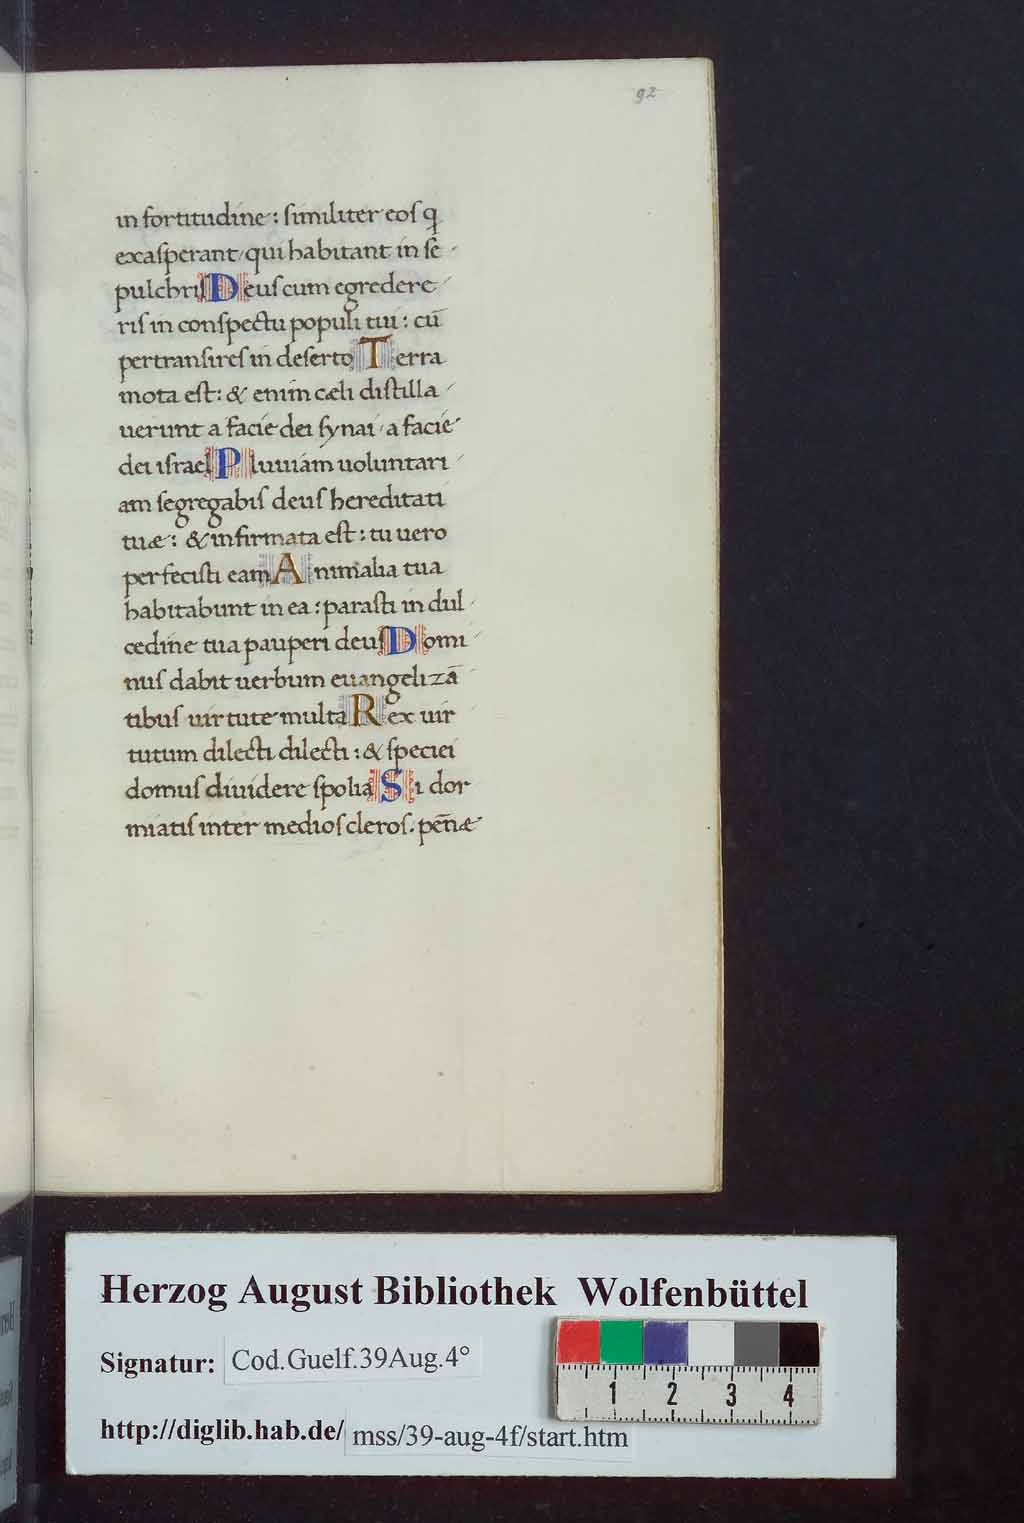 92
in fortitudine: similiter eos q̅
exasperant/qui habitant in se-
pulchris Deus cum egredere-
ris in conspectu populi tui: cū
pertransires in deserto Terra
mota est: & enim cæli distilla-
uerunt a facie dei synai/a facie
dei israel Pluuiam uoluntari-
am segregabis deus hereditati
tuæ: & infirmata est: tu uero
perfecisti eam Animalia tua
habitabunt in ea: parasti in dul-
cedine tua pauperi deus Domi-
nus dabit uerbum euangelizā-
tibus uirtute multa Rex uir
tutum dilecti dilecti: & speciei
domus diuidere spolia Si dor
miatis inter medios cleros. pen̄æ
Herzog August Bibliothek Wolfenbüttel
Signatur: Cod.Guelf.39Aug.4°
http://diglib.hab.de/mss/39-aug-4f/start.htm
1 2 3 4